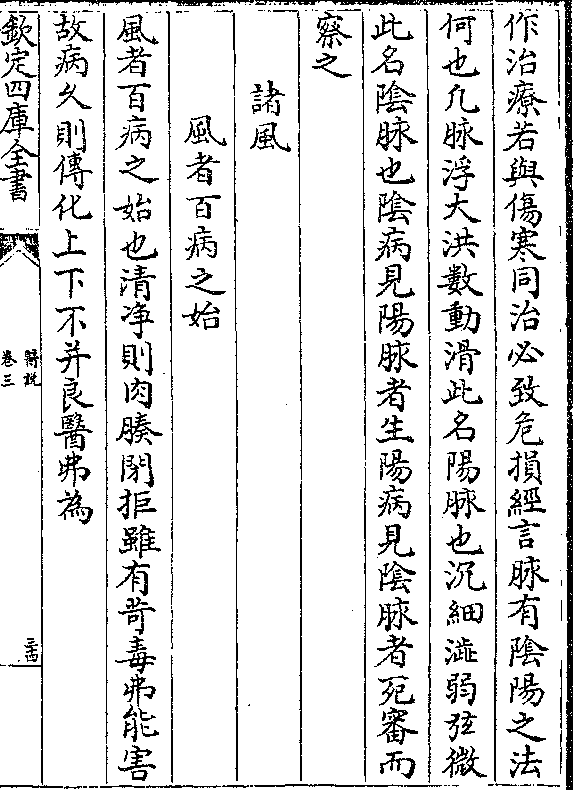 作治療若與傷寒同治必致危損經言脉有陰陽之法
何也凡脉浮大洪數動滑此名陽脉也沉細澁弱弦微
此名陰脉也陰病見陽脉者生陽病見陰脉者死審而
察之
諸風
風者百病之始
風者百病之始也清凈則肉腠閉拒雖有苛毒弗能害
故病久則傳化上下不并良醫弗為
欽定四庫全書
醫説
卷三
三十四